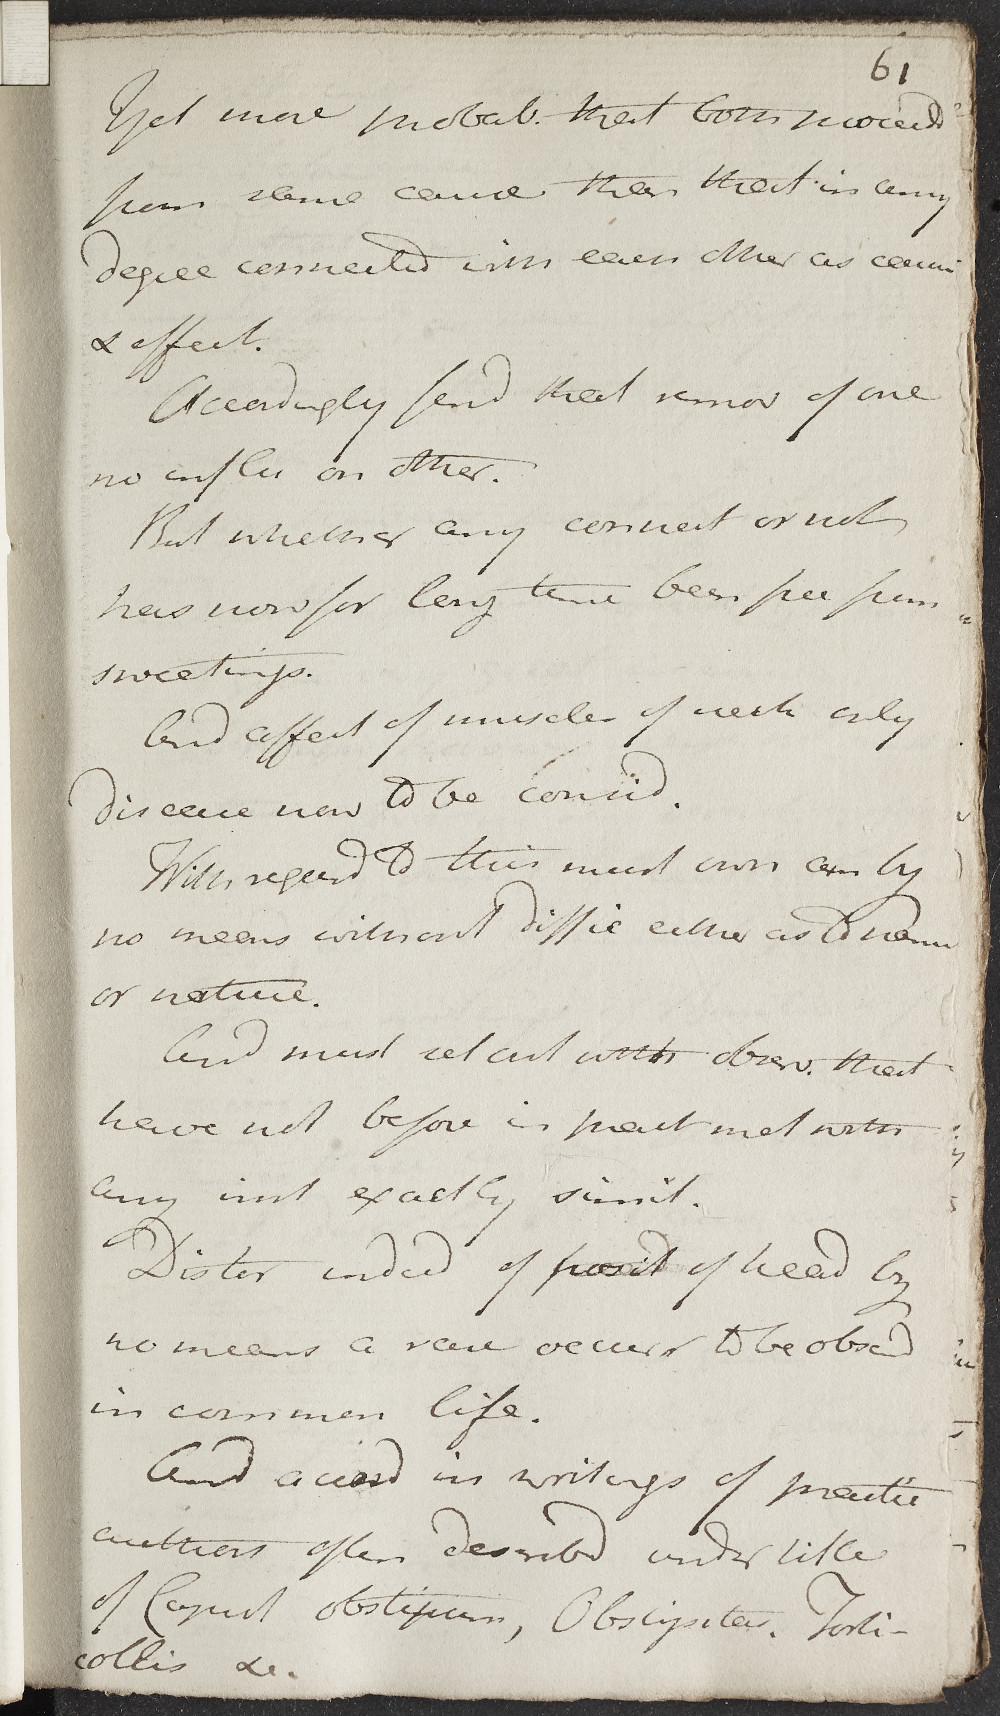 61
Yet more probab. that both proceed
from same cause than that in any
degree connected with each other as cause
& effect.
Accordingly find that remov of one
no influ on other.
But whether any connect or not
has now for long time been free from
sweatings.
And affect of muscles of neck only
disease now to be consid.
With regard to this must own am by
no means without diffic either as to name
or nature.
And must set out with observ. that
have not before in pract met with
any inst exactly simil.
Distor indeed of posit of head by
no means a rare occurr to be obsed
in common life.
And accord in writings of practic
authors often described under title
of Caput obstipum, Obstipitas. Torti-
collis &c.